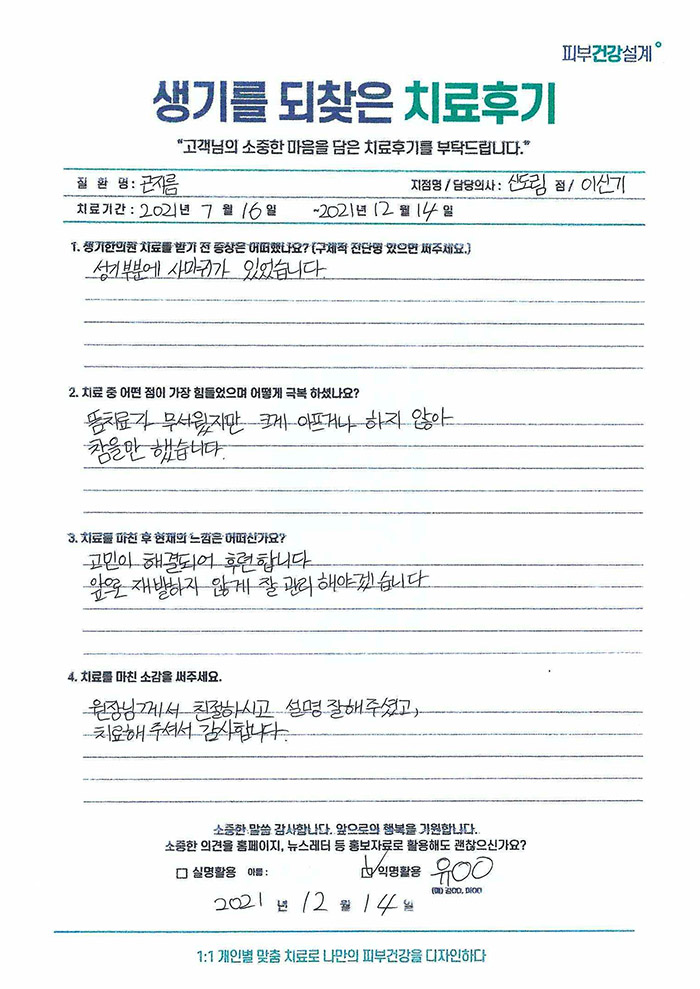 피부건강설계
생기를 되찾은 치료후기
"고객님의 소중한 마음을 담은 치료후기를 부탁드립니다."
질 환 명 : 곤지름 지점명 / 담당의사 : 신도림 점 / 이신기
치료기간 : 2021년 7 월 16 일 ~2021년 12 월 14 일
1. 생기한의원 치료를 받기 전 증상은 어떠했나요? (구체적 진단명 있으면 써주세요.)
성기부분에 사마귀가 있었습니다.
2. 치료 중 어떤 점이 가장 힘들었으며 어떻게 극복 하셨나요?
뜸치료가 무서웠지만 크게 아프거나 하지 않아
참을만 했습니다.
3. 치료를 마친 후 현재의 느낌은 어떠신가요?
고민이 해결되어 후련합니다
앞으로 재발하지 않게 잘 관리해야겠습니다
4. 치료를 마친 소감을 써주세요.
원장님께서 친절하시고 설명 잘해주셨고,
치료해 주셔서 감사합니다.
소중한 말씀 감사합니다. 앞으로의 행복을 기원합니다.
소중한 의견을 홈페이지, 뉴스레터 등 홍보자료로 활용해도 괜찮으신가요?
□ 실명활용 이름 : ☑ 익명활용 유OO
(예) 김OO, 이OO
2021 년 12 월 14 일
1:1 개인별 맞춤 치료로 나만의 피부건강을 디자인하다